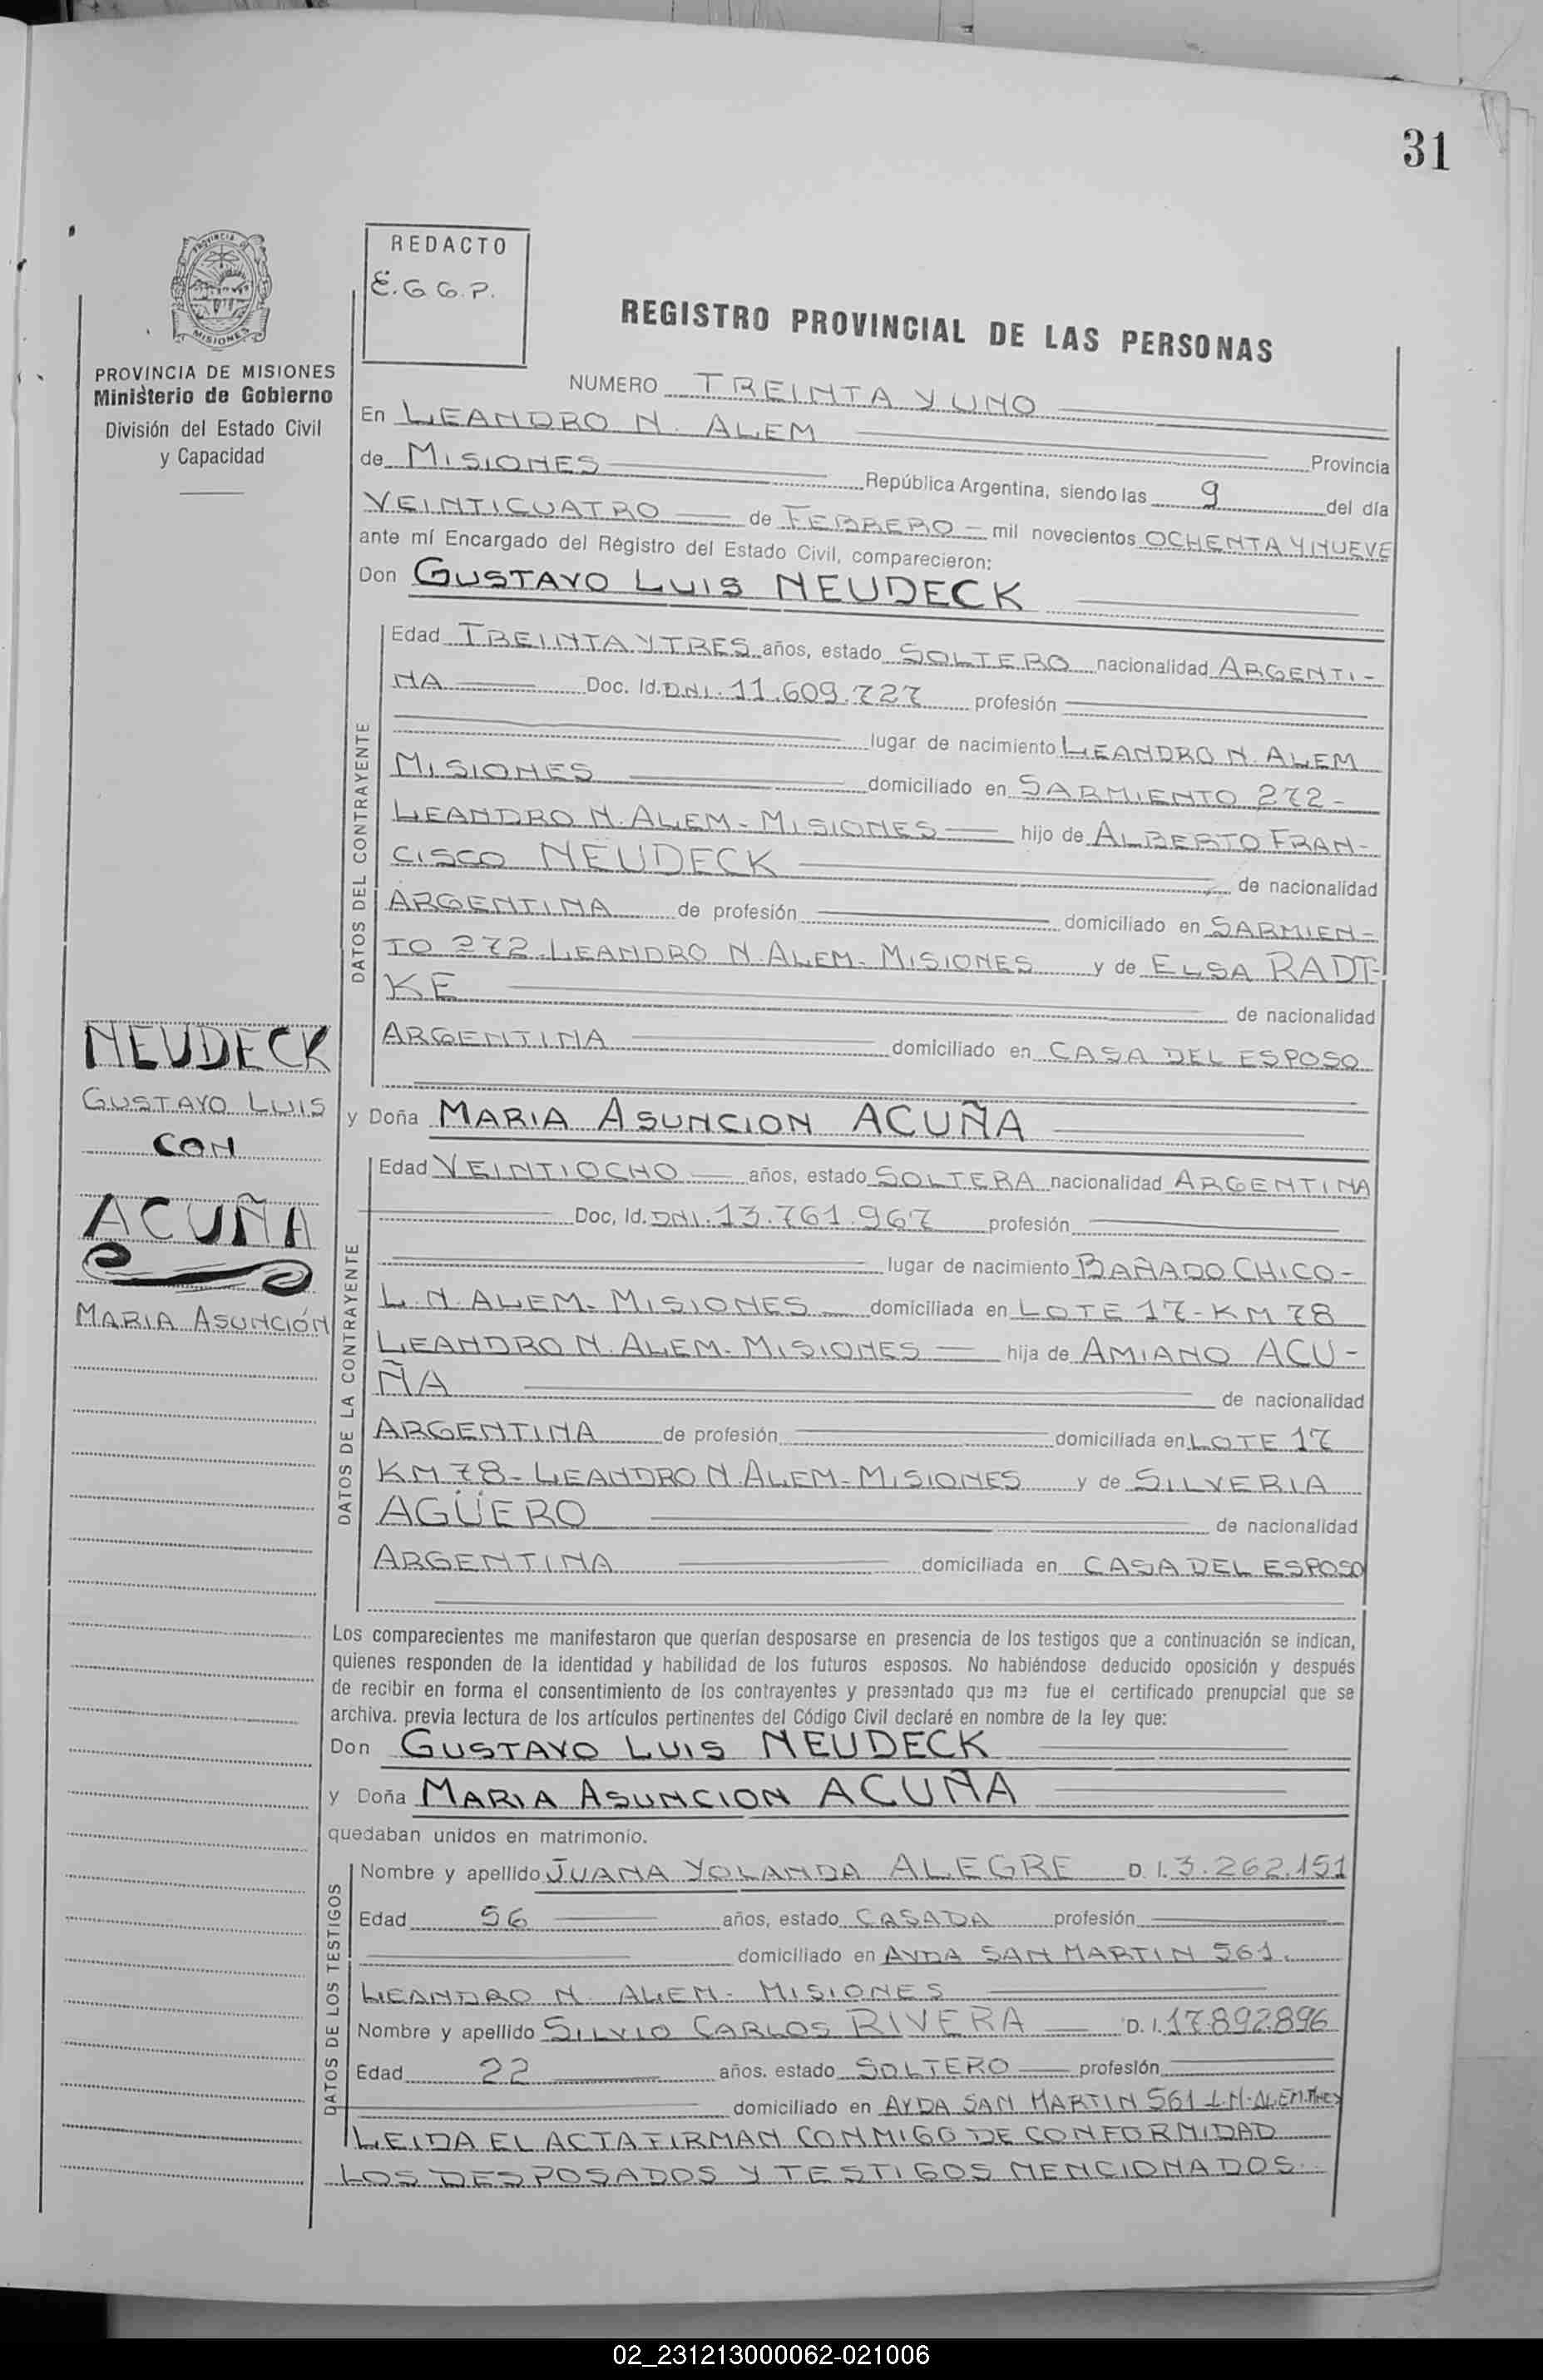 31
REDACTO
E.G.G.P.
PROVINCIA DE MISIONES
PROVINCIA DE MISIONES
Ministerio de Gobierno
División del Estado Civil
y Capacidad
REGISTRO PROVINCIAL DE LAS PERSONAS
NUMERO TREINTA Y UNO
En LEANDRO N. ALEM Provincia
de MISIONES República Argentina, siendo las 9 del día
VEINTICUATRO de FEBRERO - mil novecientos OCHENTA Y NUEVE
ante mí Encargado del Registro del Estado Civil, comparecieron:
Don GUSTAVO LUIS NEUDECK
DATOS DEL CONTRAYENTE
Edad TREINTA Y TRES años, estado SOLTERO nacionalidad ARGENTI-
NA Doc. Id. DNI. 11.609.727 profesión
lugar de nacimiento LEANDRO N. ALEM
MISIONES domiciliado en SARMIENTO 272-
LEANDRO N. ALEM - MISIONES hijo de ALBERTO FRAN-
CISCO NEUDECK de nacionalidad
ARGENTINA de profesión domiciliado en SARMIEN-
TO 272 - LEANDRO N. ALEM - MISIONES y de ELSA RADT-
KE de nacionalidad
ARGENTINA domiciliado en CASA DEL ESPOSO
NEUDECK
GUSTAVO LUIS
CON
ACUÑA
MARIA ASUNCIÓN
y Doña MARIA ASUNCION ACUÑA
DATOS DE LA CONTRAYENTE
Edad VEINTIOCHO años, estado SOLTERA nacionalidad ARGENTINA
Doc, Id. DNI. 13.761.967 profesión
lugar de nacimiento BAÑADO CHICO-
L. N. ALEM - MISIONES domiciliada en LOTE 17 - KM 78
LEANDRO N. ALEM - MISIONES hija de AMIANO ACU-
ÑA de nacionalidad
ARGENTINA de profesión domiciliada en LOTE 17
KM 78 - LEANDRO N. ALEM - MISIONES y de SILVERIA
AGÜERO de nacionalidad
ARGENTINA domiciliada en CASA DEL ESPOSO
Los comparecientes me manifestaron que querían desposarse en presencia de los testigos que a continuación se indican,
quienes responden de la identidad y habilidad de los futuros esposos. No habiéndose deducido oposición y después
de recibir en forma el consentimiento de los contrayentes y presentado que me fue el certificado prenupcial que se
archiva. previa lectura de los artículos pertinentes del Código Civil declaré en nombre de la ley que:
Don GUSTAVO LUIS NEUDECK
y Doña MARIA ASUNCION ACUÑA
quedaban unidos en matrimonio.
DATOS DE LOS TESTIGOS
Nombre y apellido JUANA YOLANDA ALEGRE D. I. 3.262.151
Edad 56 años, estado CASADA profesión
domiciliado en AVDA SAN MARTIN 561.
LEANDRO N. ALEM - MISIONES
Nombre y apellido SILVIO CARLOS RIVERA D. I. 17.892.896
Edad 22 años. estado SOLTERO profesión
domiciliado en AVDA SAN MARTIN 561 L.N.ALEM.Mnes
LEIDA EL ACTA FIRMAN CONMIGO DE CONFORMIDAD
LOS DESPOSADOS Y TESTIGOS MENCIONADOS.
02_231213000062-021006